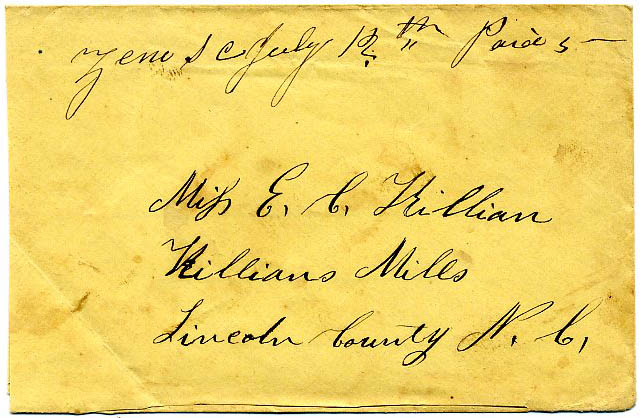 Zeno S C July 12th Paid 5
Miss E. C. Killian
Killians Mills
Lincoln County N. C,